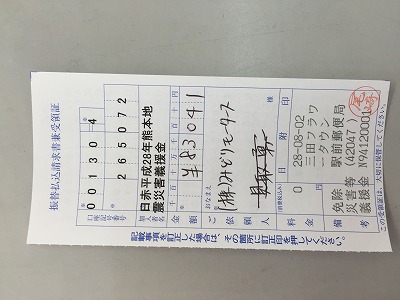 振替払込請求書兼受領証
口座記号番号
00130-4
265072
加入者名
日赤平成28年熊本地
震災害義援金
金額
千百十万千百十円
¥83041
ご依頼人
おなまえ
(株)みどりモータース
様
料金
(消費税込み)
0
円
日附印
28-08-02
三田フラワ
ータウン
駅前郵便局
(42047)
N94120001
備考
免除
災害等
義援金
尾崎
記載事項を訂正した場合は、その箇所に訂正印を押してください。
この受領証は、大切に保管してください。